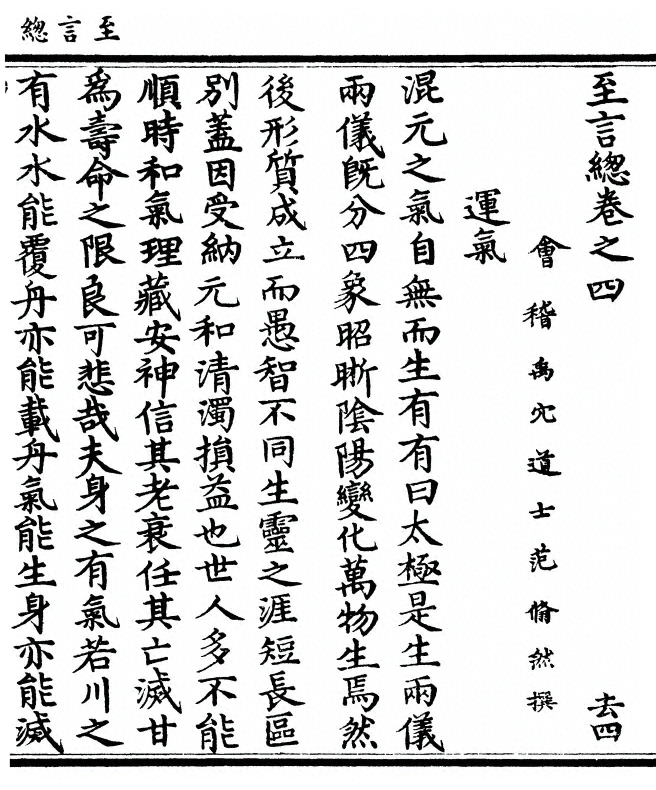 至言總
至言總卷之四
去四
會稽禹穴道士范翛然撰
運氣
混元之氣自無而生有有曰太極是生兩儀
兩儀旣分四象昭晰陰陽變化萬物生焉然
後形質成立而愚智不同生靈之涯短長區
別蓋因受納元和清濁損益也世人多不能
順時和氣理藏安神信其老衰任其亡滅甘
爲壽命之限良可悲哉夫身之有氣若川之
有水水能覆舟亦能載舟氣能生身亦能滅